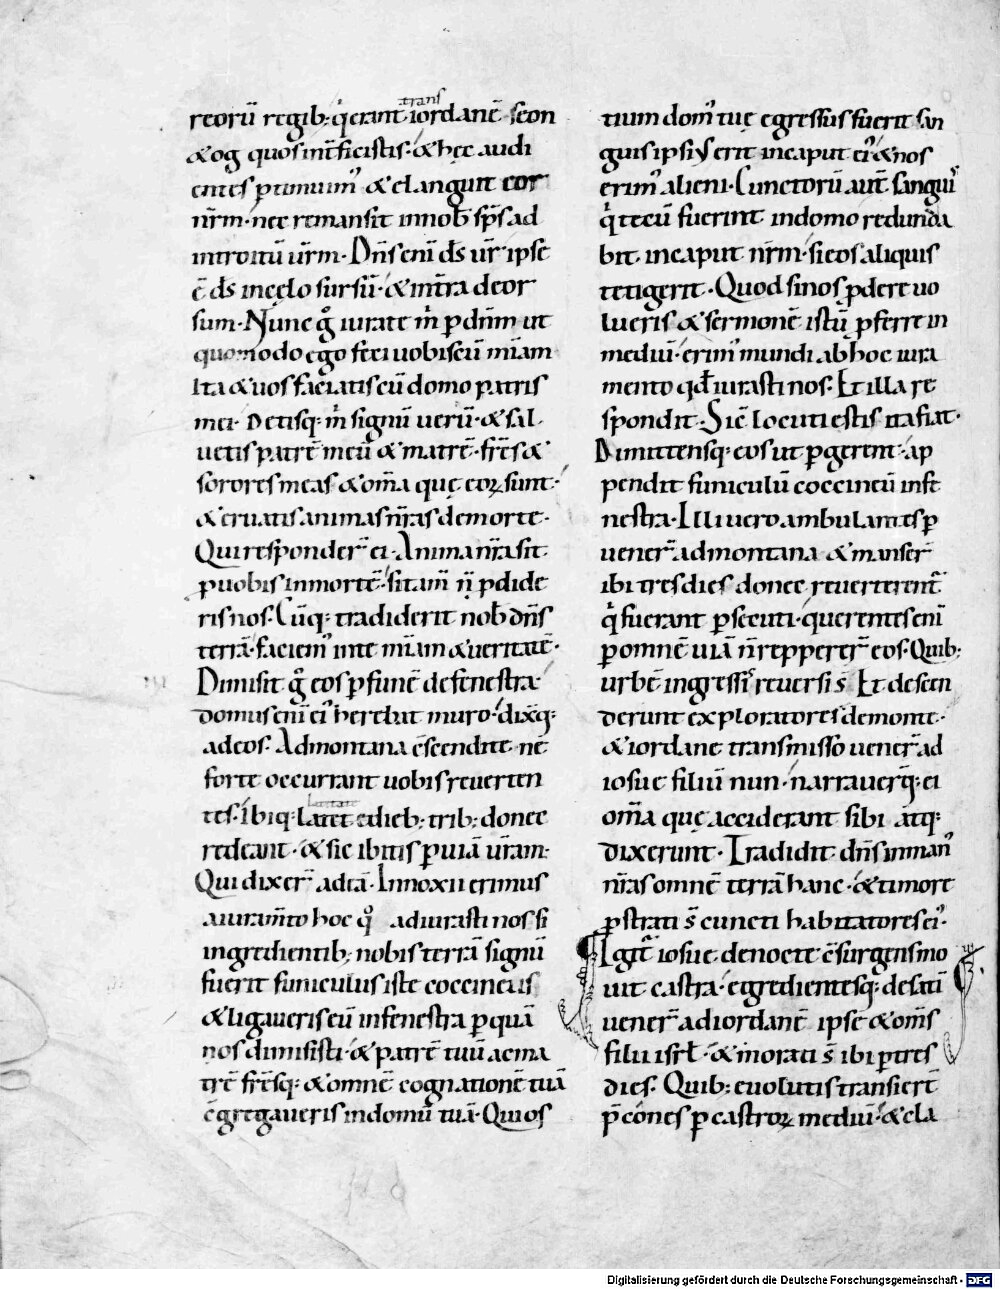 trans
reorū regib; q̇ erant iordanē seon
& og quos int̄ficistis· & hęc audi
entes ꝑtimuim᾽ & elanguit cor
nr̄m· nec remansit in nob̄ sp̄s ad
introitū ur̄m· Dn̄s enī ds̄ ur̄ ipse
ē ds̄ in cęlo sursū· & int̄ra deor
sum· Nunc g̊ iurate m̄ p dn̄m ut
quomodo ego feci uobiscū mīam
Ita & uos faciatis cū domo patris
mei· Detisq; m̄ signū uerū· & sal
uetis patrē meū & matrē· fr̄es &
sorores meas & om̄a quę eoꝝ sunt·
& eruatis animas nr̄as de morte·
Qui responder̄ ei· Anima nr̄a sit
ꝓ uobis in mortē· si tam̄ n̄ ꝓdide
ris nos. Cūq; tradiderit nob̄ dn̄s
terrā· faciem᾽ in te mīam & ueritatē·
Dimisit g̊ eos ꝑ funē de fenestra·
domus enī ei᾽ herebat muro· dixq;
ad eos· Ad montana c̄scendite ne
forte occurrant uobis reuerten
latitate
tes· Ibiq; latet& dieb; trib; donec
redeant· & sic ibitis ꝑ uiā ur̄am·
Qui dixer̄ ad eā· Innoxii erimus
a iuram̄to hoc q̊ adiurasti nos si
ingredientib; nobis terrā signū
fuerit funiculus iste coccineus
& ligaueris eū in fenestra ꝑ quā
nos dimisisti· & patrē tuū ac ma
trē fr̄esq; & omnē cognationē tuā
c̄gregaueris in domū tuā· Qui os
tium dom᾽ tuę egressus fuerit san
guis ipsi᾽ erit in caput ei᾽ & nos
erim᾽ alieni· Cunctorū aut̄ sanguis
q̇ tecū fuerint in domo redunda
bit in caput nr̄m· si eos aliquis
tetigerit· Quod si nos ꝓdere uo
lueris & sermonē istū ꝓferre in
mediū· erim᾽ mundi ab hoc iura
mento qd̄ iurasti nos· Et illa re
spondit· Sic̄ locuti estis ita fiat·
Dimittensq; eos ut ꝑgerent· ap
pendit funiculū coccineū in fe
nestra· Illi uero ambulantes ꝑ
uener̄ ad montana & manser̄
ibi tres dies donec reuerterent̄
q̇ fuerant ꝑsecuti· querentes enī
ꝑ omnē uiā n̄ reppererr̄ eos· Quib;
urbē ingressis reuersi s̄ Et descen
derunt exploratores de monte·
& iordane transmisso uener̄ ad
iosue filiū nun· narrauerq; ei
om̄a quę acciderant sibi atq;
dixerunt· Tradidit dn̄s in man᾽
nr̄as omnē terrā hanc· & timore
ꝓstrati s̄ cuncti habitatores ei᾽·
Igit̄ iosue de nocte c̄surgens mo
uit castra· egredientesq; de setī
uener̄ ad iordanē ipse & om̄s
filii isrl̄· & morati s̄ ibi ꝑ tres
dies· Quib; euolutis transiert̄
p̄cones ꝑ castroꝝ mediū· & cla
Digitalisierung gefördert durch die Deutsche Forschungsgemeinschaft - DFG